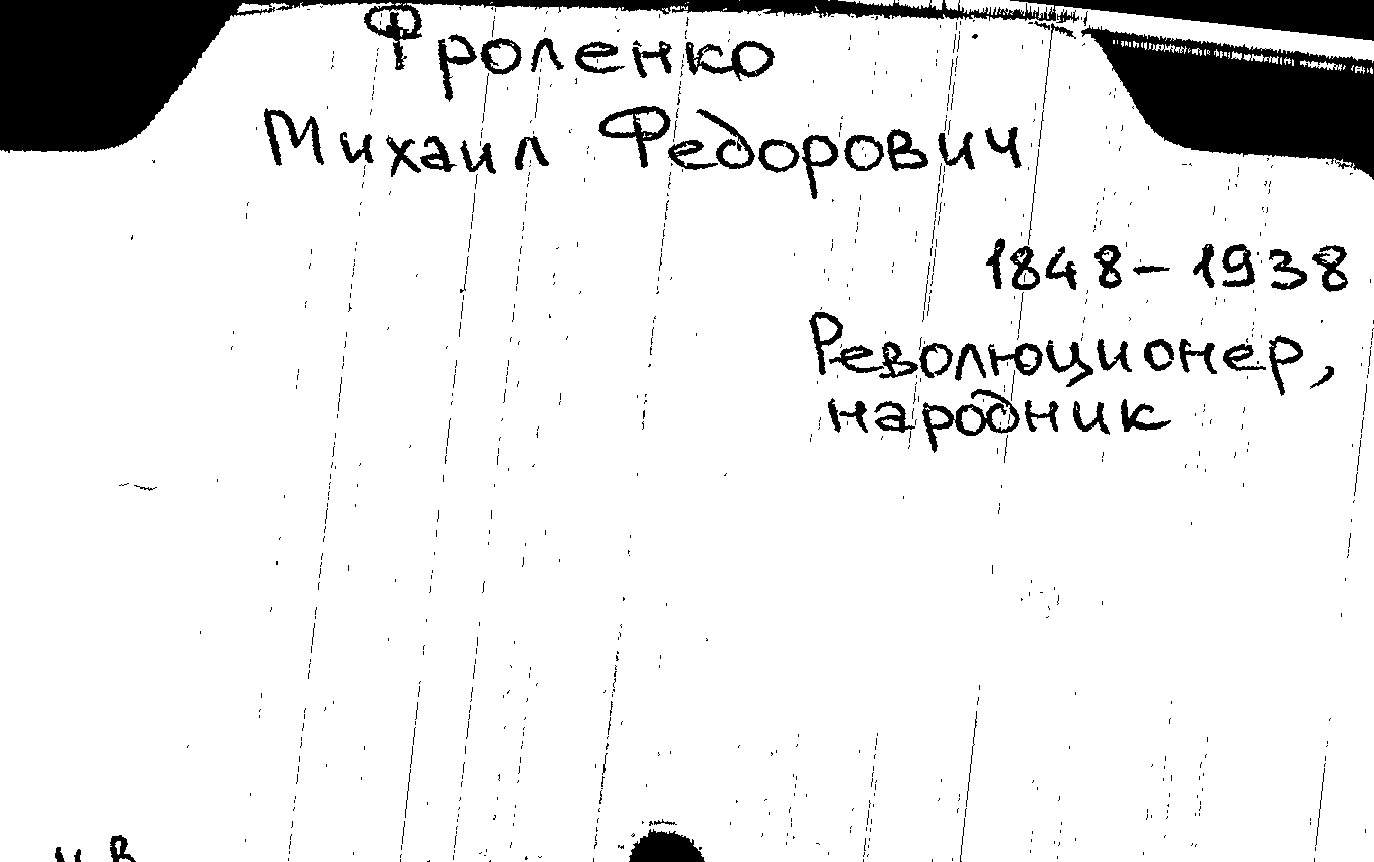 Фроленко
Михаил Федорович
1848-1938
Революционер,
народник